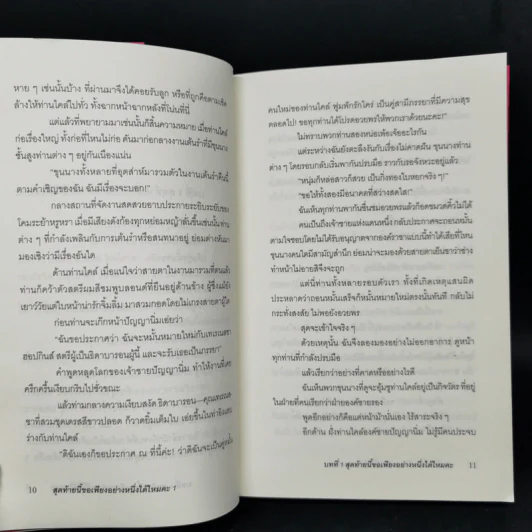 หาย ๆ เช่นนั้นบ้าง ที่ผ่านมาจึงได้คอยรับลูก หรือที่ถูกคือตามเช็ด
ล้างให้ท่านไคล์ไปทั่ว ทั้งฉากหน้าฉากหลังที่โน่นที่นี่
แต่แล้วที่พยายามมาเช่นนั้นก็สิ้นความหมาย เมื่อท่านไคล์
ก่อเรื่องใหญ่ ทั้งก่อที่ไหนไม่ก่อ ดันมาก่อกลางงานเต้นรำที่มีขุนนาง
ชั้นสูงท่านต่าง ๆ อยู่กันเนืองแน่น
"ขุนนางทั้งหลายที่อุตส่าห์มารวมตัวในงานเต้นรำคืนนี้
ตามคำเชิญของฉัน ฉันมีเรื่องจะบอก!"
กลางสถานที่จัดงานสุดสวยอาบประกายระยิบระยับของ
โคมระย้าหรูหรา เมื่อมีเสียงดังก้องทุกหย่อมหญ้าลั่นขึ้นเช่นนั้น ท่าน
ต่าง ๆ ที่กำลังเพลินกับการเต้นรำหรือสนทนาอยู่ ย่อมต่างหันมา
มองเชิงว่ามีเรื่องอันใด
ด้านท่านไคล์ เมื่อแน่ใจว่าสายตาในงานมารวมที่ตนแล้ว
ท่านก็คว้าตัวสตรีผมสีชมพูบลอนด์ที่ยืนอยู่ด้านข้าง ผู้ซึ่งแม้ยัง
เยาว์วัยแต่ใบหน้าน่ารักจิ้มลิ้ม มาสวมกอดโดยไม่เกรงสายตาผู้ใด
ก่อนท่านจะเกิ๊กหน้าปัญญานิ่มเอ่ยว่า
"ฉันขอประกาศว่า ฉันจะหมั้นหมายใหม่กับเทเรเนเซีย
ฮอปกินส์ สตรีผู้เป็นธิดาบารอนผู้นี้ และจะรับเธอเป็นภรรยา"
คำพูดหลุดโลกของเจ้าชายปัญญานิ่ม ทำให้งานที่
ครึกครื้นเงียบกริบไปชั่วขณะ
แล้วท่ามกลางความเงียบสงัด ธิดาบารอน—คุณเทเรเนเซีย
ร่างกับท่านไคล์
"ดิฉันเองก็ขอประกาศ ณ ที่นี้ค่ะ! ว่าดิฉันจะเป็นคู่หมั้น
10 สุดท้ายนี้ขอเพียงอย่างหนึ่งได้ไหมคะ 1
คนใหม่ของท่านไคล์ ฟูมฟักรักใคร่ เป็นคู่สามีภรรยาที่มีความสุข
ตลอดไป! ขอทุกท่านได้โปรดอวยพรให้พวกเราด้วยนะคะ!"
ไม่ทราบพวกท่านสองหน่อเพ้อเจ้ออะไรกัน
แต่ระหว่างฉันยังตะลึงงันกับเรื่องไม่คาดฝัน ขุนนางท่าน
ต่าง ๆ โดยรอบกลับเริ่มพากันปรบมือ ราวกับรอจังหวะอยู่แล้ว
"หนุ่มก็หล่อสาวก็สวย เป็นกิ่งทองใบหยกจริง ๆ!"
"ขอให้ทั้งสองมีอนาคตที่สว่างสดใส!"
ฉันเห็นทุกท่านพากันชื่นชมอวยพรแล้วก็อดขมวดคิ้วไม่ได้
คนเป็นถึงเจ้าชายแห่งแดนหนึ่ง กลับประกาศจะถอนหมั้น
ตามใจชอบโดยไม่ได้รับอนุญาตจากองค์ราชาแบบนี้ทำได้เสียที่ไหน
ขุนนางคนใดมีสามัญสำนึก ย่อมน่าจะมองด้วยสายตาเย็นชาว่าช่าง
ทำหน้าไม่อายสิจึงจะถูก
แต่นี่ท่านทั้งหลายรอบตัวเรา ทั้งที่เกิดเหตุแสนผิด
ประหลาดว่าถอนหมั้นเสร็จก็หมั้นหมายใหม่ตรงนั้นทันที กลับไม่
กระทั่งสงสัย ไม่พอยังอวยพร
สุดจะเข้าใจจริง ๆ
ด้วยเหตุนั้น ฉันจึงลองมองอย่างไม่ออกอาการ ดูหน้า
ทุกท่านที่กำลังปรบมือ
แล้วเรียกว่าอย่างที่คาดหรืออย่างไรดี
ฉันเห็นพวกขุนนางที่ดูจะอุ้มชูท่านไคล์อยู่เป็นกิจวัตร ที่อยู่
ในฝ่ายที่คนเรียกว่าฝ่ายองค์ชายรอง
พูดอีกอย่างก็คือแต่หน้าม้านั่นเอง ไร้สาระจริง ๆ
อีกด้าน ฝั่งท่านไคล์องค์ชายปัญญานิ่ม ไม่รู้มีคนประจบ
บทที่ 1 สุดท้ายนี้ขอเพียงอย่างหนึ่งได้ไหมคะ 11